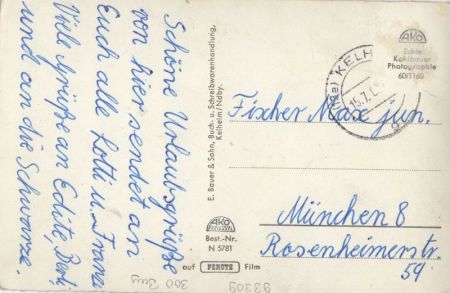 Schöne Urlaubsgrüße
von hier sendet an
Euch alle Lotti u. Franz
Viele Grüße an Edith, Bert,
und an die Schwarze.
E. Bauer & Sohn, Buch- u. Schreibwarenhandlung,
Kelheim/Ndby.
AKO
Best.-Nr.
N 5781
auf PERUTZ Film
300 Bay
93309
AKO
Echte
Kohlbauer
Photographie
60/1160
KELH
15.7.6
a
Fischer Max jun.
München 8
Rosenheimerstr.
59